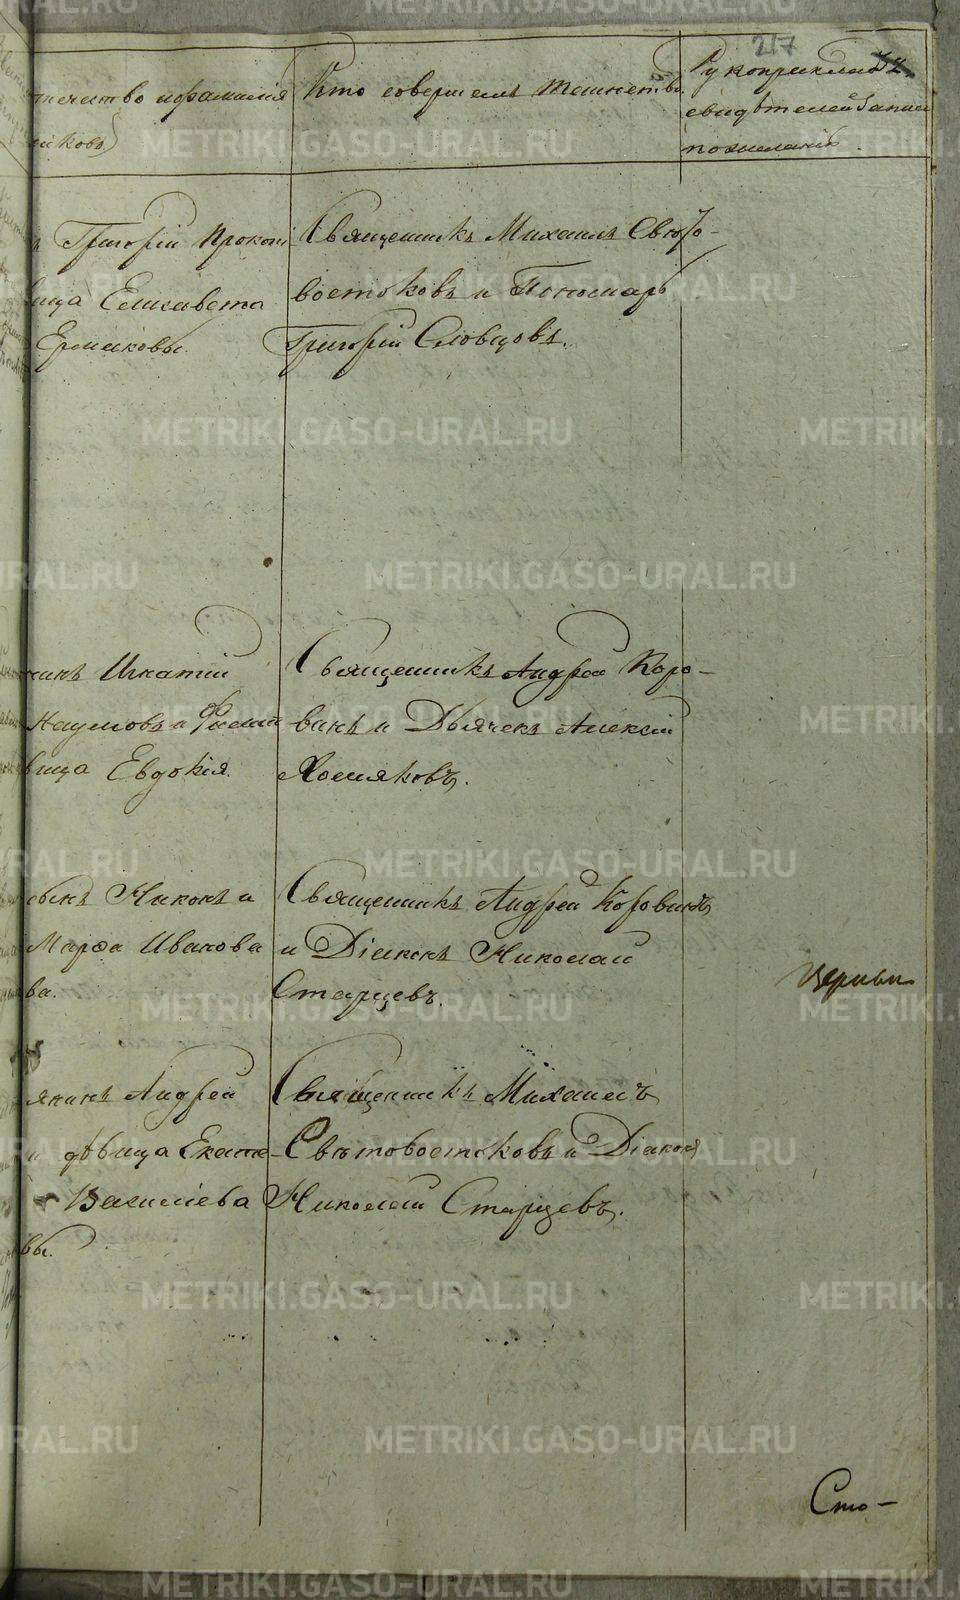 217
течество ифамилія
иковъ)
Кто совершалъ таинство.
Рукоприклад
свидѣтелей записи
по желанію.
Григорій Прокоп
вица Елисавета
Ермаковы.
Священникъ Михаилъ Свѣто-
востоковъ и Пономарь
Григорій Словцовъ.
никъ Игнатій
Наумовъ и
вица Евдокія.
Священникъ Андрей Коро-
винъ и Дьячекъ Алексій
Хомяковъ.
Никонъ и
Марѳа Иванова
ва.
Священникъ Андрей Коровинъ
и Діаконъ Николай
Старцевъ.
янинъ Андрей
и дѣвица Екате-
Василіева
вы.
Священникъ Михаилъ
Свѣтовостоковъ и Діаконъ
Николай Старцевъ.
Церкви
Сто-
METRIKI.GASO-URAL.RU